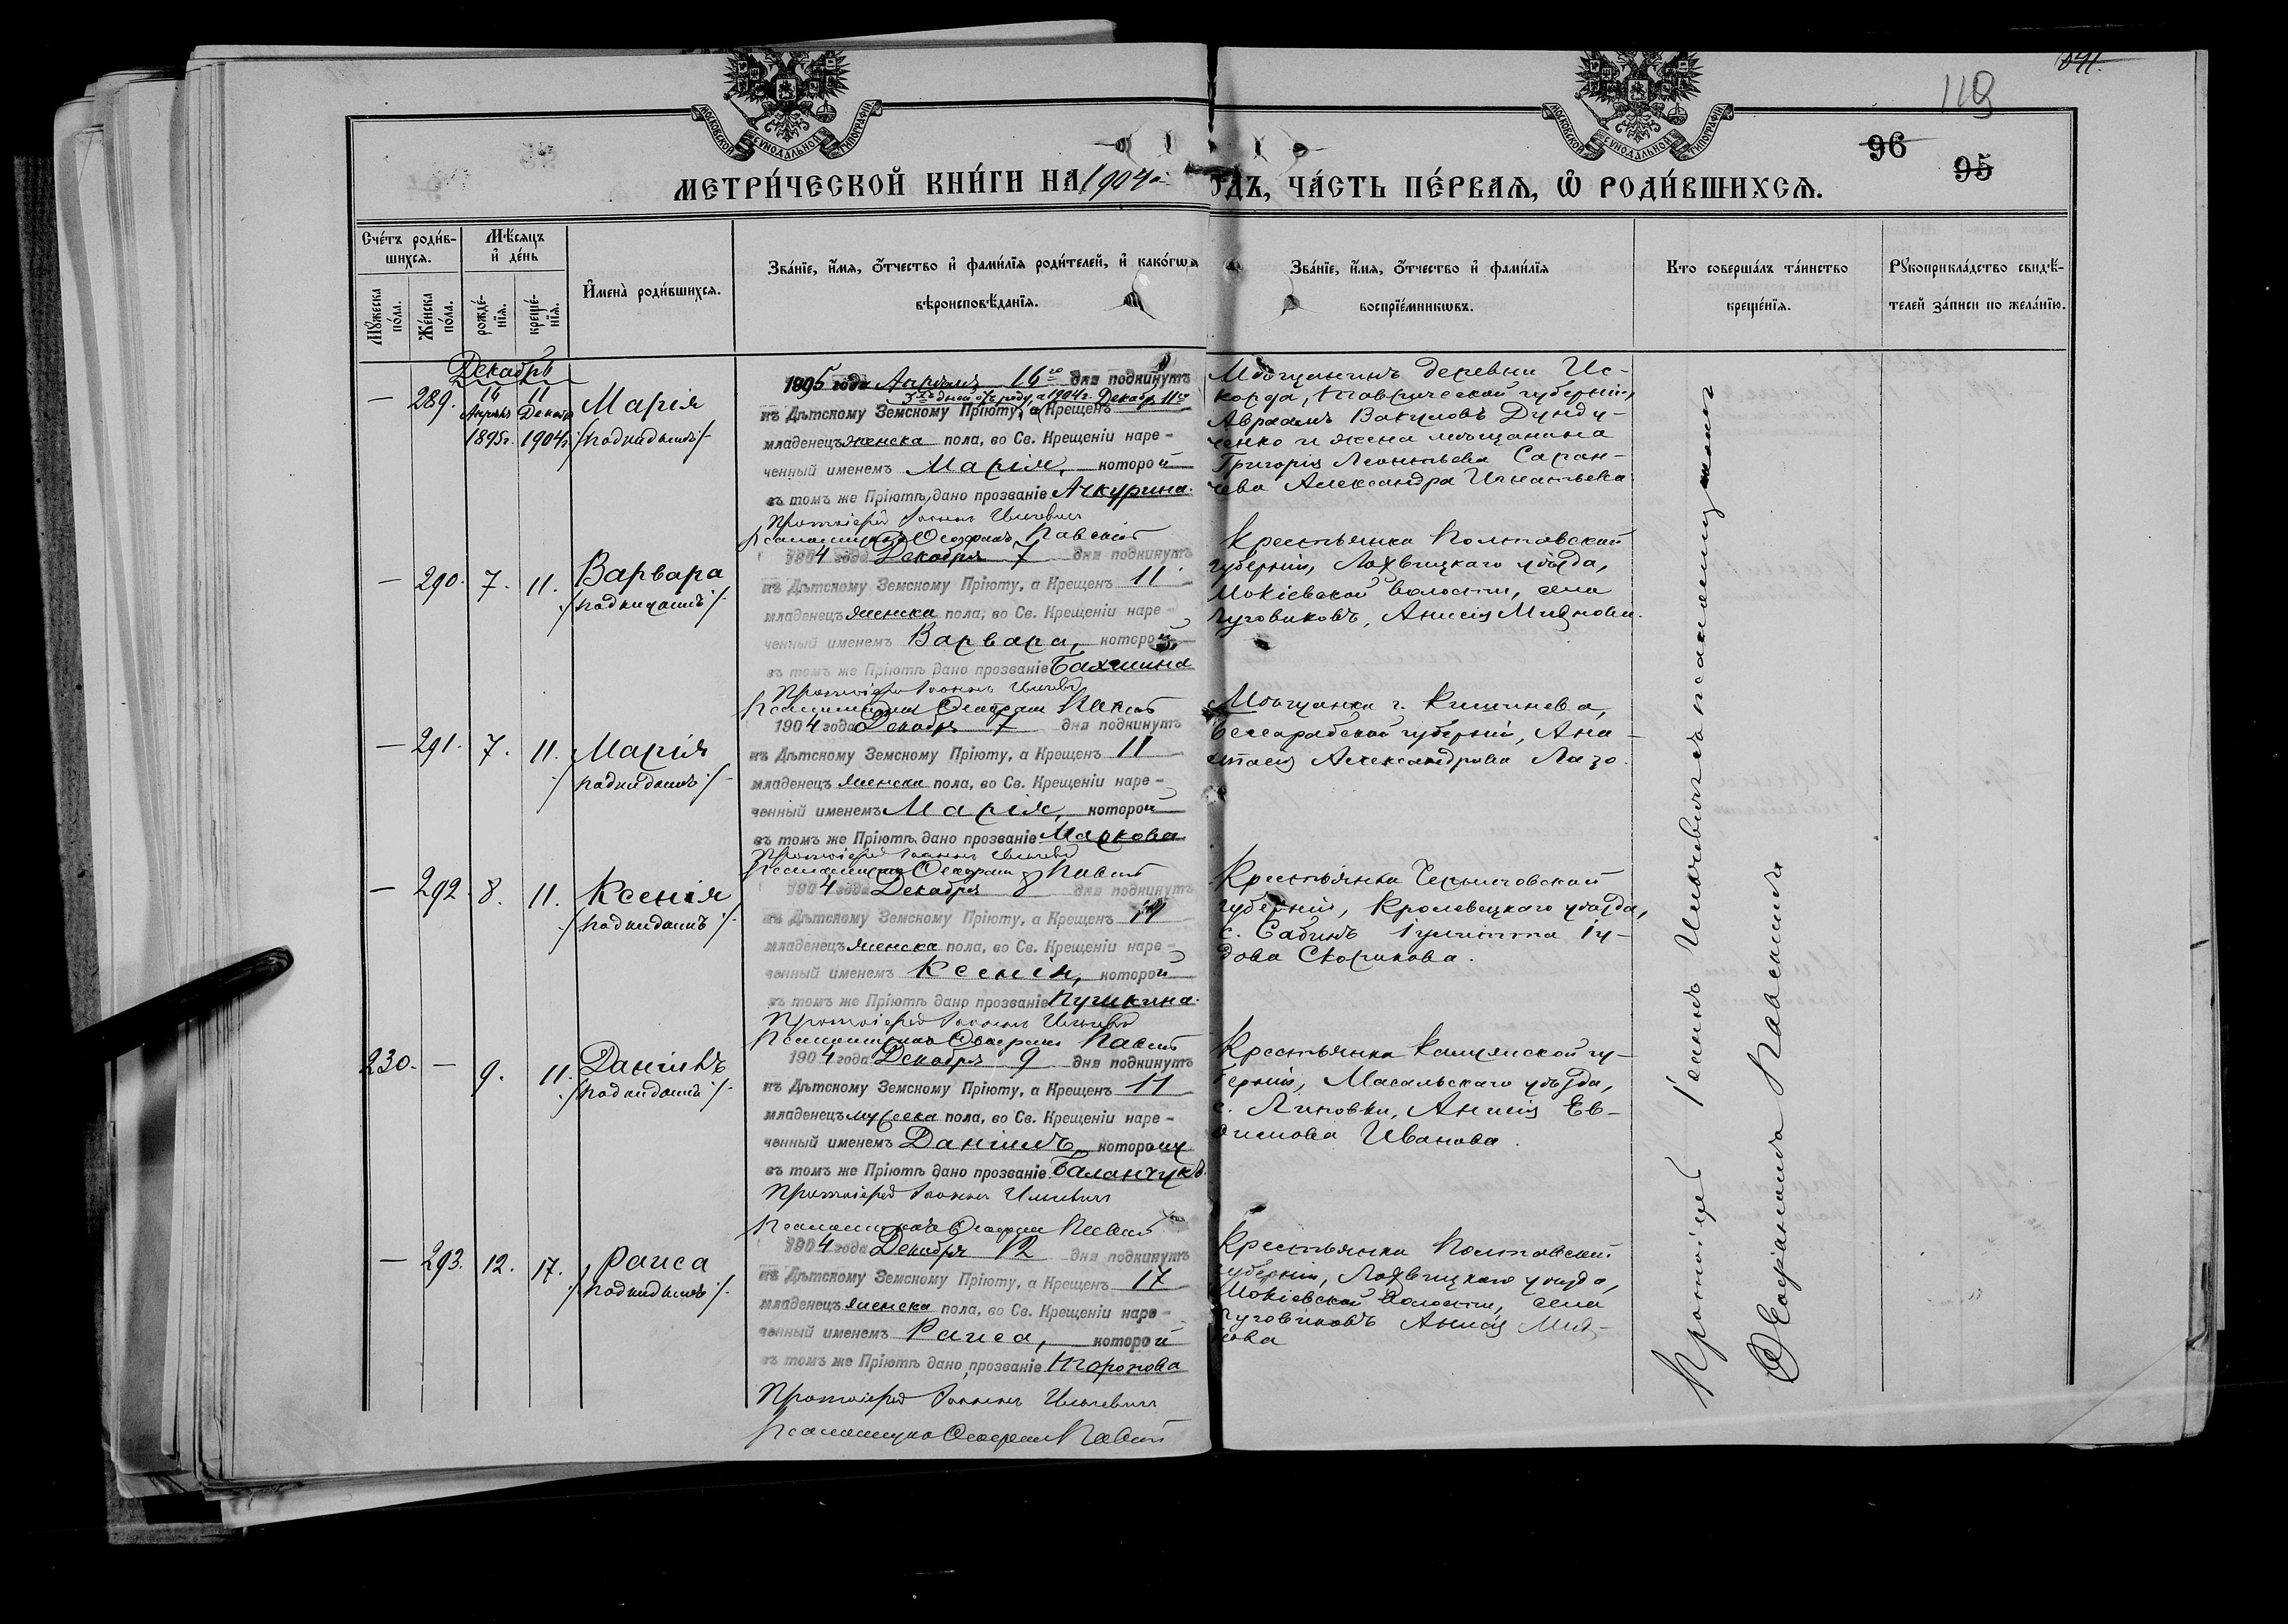 МОСКОВСКОЙ СѴНОДАЛЬНОЙ ТИПОГРАФІИ
МОСКОВСКОЙ СѴНОДАЛЬНОЙ ТИПОГРАФІИ
119
96
95
МЕТРИ́ЧЕСКОЙ КНИ́ГИ НА 1904й
ОДЪ, ЧА́СТЬ ПЕ́РВАѦ, Ѡ РОДИ́ВШИХСѦ.
Сче́тъ роди́в-
шихсѧ.
Мѣ́сѧцъ
и҆ де́нь
Мꙋ́жеска по́ла.
Же́нска по́ла.
рожде́-
нїѧ.
креще́-
нїѧ.
И҆мена̀ роди́вшихсѧ.
Зва́нїе, и҆́мѧ, ѻ҆́тчество и҆ фами́лїѧ роди́телей, и҆ како́гѡ
вѣроисповѣ́данїѧ.
Зва́нїе, и҆́мѧ, ѻ҆́тчество и҆ фами́лїѧ
воспрїе́мникѡвъ.
Кто соверша́лъ та́инство
креще́нїѧ.
Рꙋкоприкла́дство свидѣ́-
телей за́писи по жела́нїю.
Декабрь
— 289. 16 Апрѣль 1895г. 11 Декабр 1904г.
Марія
/подкидышъ/
1895 года Апрѣля 16го дня подкинутъ
къ Дѣтскому Земскому Пріюту, а Крещенъ
1904г. Декабр. 11го
младенецъ женска пола, во Св. Крещеніи наре-
ченный именемъ Марія, которой
въ томъ же Пріютѣ, дано прозваніе Ачкурина.
Протоіерей Іоаннъ Ильчевичъ
Псаломщикъ Ѳеофанъ Павскій
Мѣщанинъ деревни Ис-
корда, Таврической губерніи,
Авраамъ Вакуловъ Дунду-
ченко и жена мѣщанина
Григорія Леонтьева Саран-
чева Александра Игнатьева
— 290. 7. 11.
Варвара
/подкидышъ/
1904 года Декабря 7 дня подкинутъ
къ Дѣтскому Земскому Пріюту, а Крещенъ 11
младенецъ женска пола, во Св. Крещеніи наре-
ченный именемъ Варвара, которой
въ томъ же Пріютѣ дано прозваніе Бахшина
Протоіерей Іоаннъ Ильчевичъ
Псаломщикъ Ѳеофанъ Павскій
Крестьянка Полтавской
губерніи, Лохвицкаго уѣзда,
волости, села
Анисія
— 291. 7. 11.
Марія
/подкидышъ/
1904 года Декабря 7 дня подкинутъ
къ Дѣтскому Земскому Пріюту, а Крещенъ 11
младенецъ женска пола, во Св. Крещеніи наре-
ченный именемъ Марія, которой
въ томъ же Пріютѣ дано прозваніе Маркова
Протоіерей Іоаннъ Ильчевичъ
Псаломщикъ Ѳеофанъ Павскій
Мѣщанка г. Кишинева,
Бессарабской губерніи, Ана-
стасія Александрова Лазо.
— 292. 8. 11.
Ксенія
/подкидышъ/
1904 года Декабря 8 дня подкинутъ
къ Дѣтскому Земскому Пріюту, а Крещенъ 11
младенецъ женска пола, во Св. Крещеніи наре-
ченный именемъ Ксенія, которой
въ томъ же Пріютѣ дано прозваніе Пушкина.
Протоіерей Іоаннъ Ильчевичъ
Псаломщикъ Ѳеофанъ Павскій
Крестьянка Черниговской
губерніи, Кролевецкаго уѣзда,
с. Іулитта Іу-
дова Скорикова.
230. — 9. 11.
Даніилъ
/подкидышъ/
1904 года Декабря 9 дня подкинутъ
къ Дѣтскому Земскому Пріюту, а Крещенъ 11
младенецъ мужеска пола, во Св. Крещеніи наре-
ченный именемъ Даніилъ, которому
въ томъ же Пріютѣ дано прозваніе Баланчукъ.
Протоіерей Іоаннъ Ильчевичъ
Псаломщикъ Ѳеофанъ Павскій
Крестьянка Калужской гу-
берніи, Масальскаго уѣзда,
с. Липовки, Анисія Ев-
фимова Иванова.
— 293. 12. 17.
Раиса
/подкидышъ/
1904 года Декабря 12 дня подкинутъ
къ Дѣтскому Земскому Пріюту, а Крещенъ 17
младенецъ женска пола, во Св. Крещеніи наре-
ченный именемъ Раиса, которой
въ томъ же Пріютѣ дано прозваніе
Протоіерей Іоаннъ Ильчевичъ
Псаломщикъ Ѳеофанъ Павскій
Крестьянка Полтавской
губерніи, Лохвицкаго уѣзда,
волости, села
Анисія
Протоіерей Іоаннъ Ильчевичъ съ псаломщикомъ
Ѳеофаномъ Павскимъ